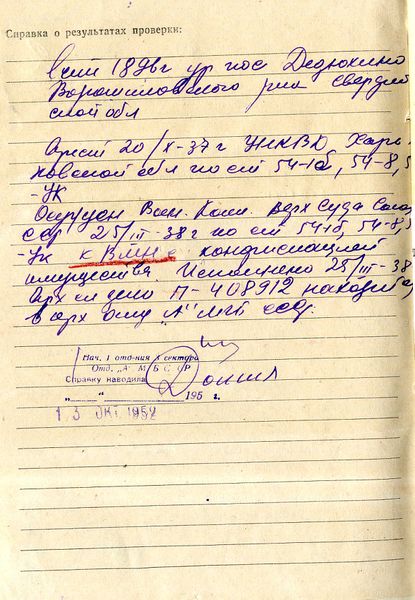 Справка о результатах проверки:
1896 г ур пос Дедюхино
Ворошиловского р-на Свердло
ской обл
Арест 20/X-37 г УНКВД Харь
ковской обл по ст 54-1б, 54-8,
-УК
Осужден Воен. Колл. Верх Суда Союза
ССР 25/III-38 г по ст 54-1б, 54-8,
-УК к ВМН с конфискацией
имущества. Исполнено 25/III-38
Арх сл дело П-408912 находит
в арх отд "А" МГБ СССР.
Нач. 1 отд-ния 3 сектора
Отд. „А" М Б С СР
Справку наводила
„ " 195 г.
13 ОКТ 1952